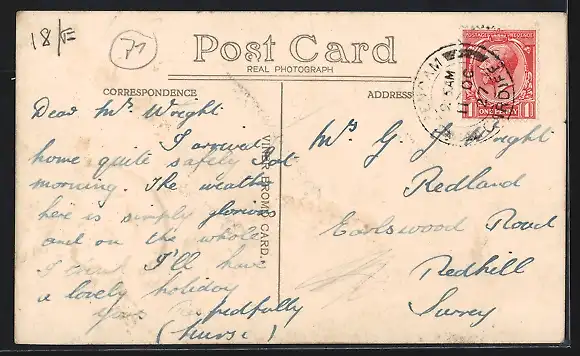 18/E
71
Post Card
REAL PHOTOGRAPH
CORRESPONDENCE
ADDRESS
Dear Mrs Wright
I arrived
home quite safely Sat
morning. The weather
here is simply glorious
and on the whole
I I'll have
a lovely holiday
yours respedfully
(nurse)
VINER BROMIDE CARD.
Mrs G. J. Wright
Redland
Earlswood Road
Redhill
Surrey
POSTAGE REVENUE
ONE PENNY
1 1
AM
11 OC
27